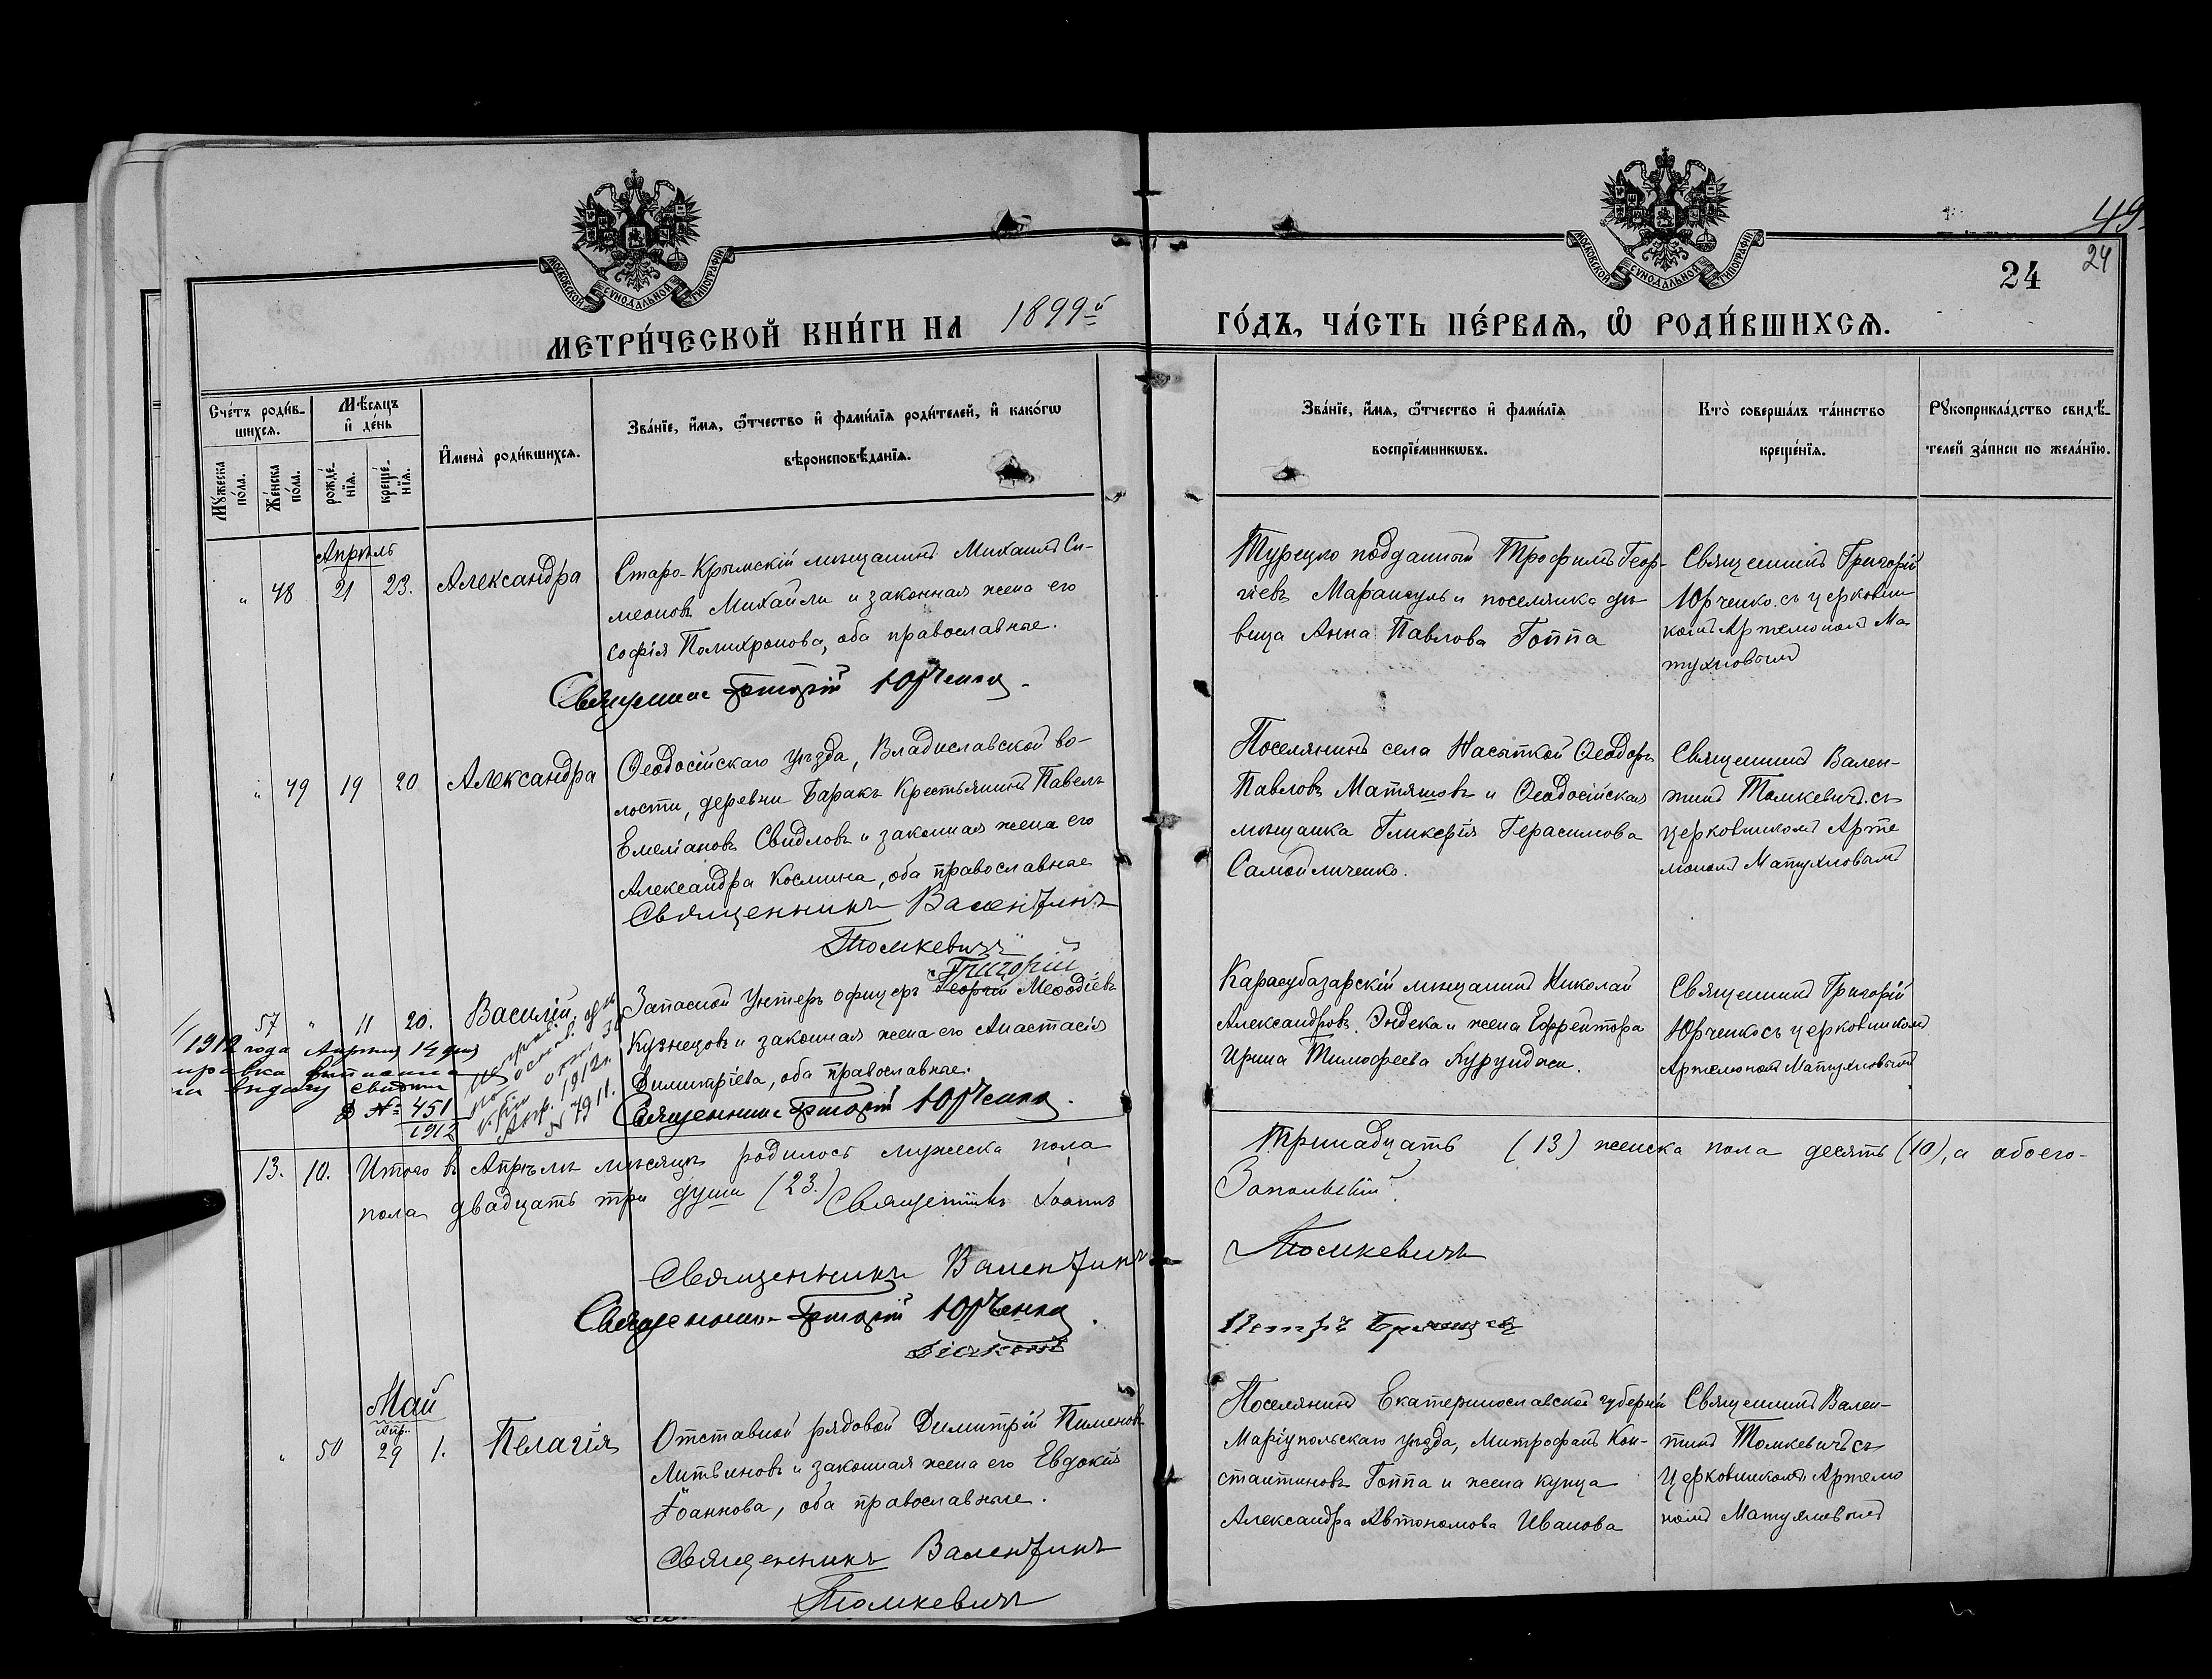 49
24
24
МОСКОВСКОЙ СѴНОДАЛЬНОЙ ТИПОГРАФІИ
МОСКОВСКОЙ СѴНОДАЛЬНОЙ ТИПОГРАФІИ
МЕТРИ́ЧЕСКОЙ КНИ́ГИ НА 1899й ГО́ДЪ, ЧА́СТЬ ПЕ́РВАѦ, Ѡ҆ РОДИ́ВШИХСѦ.
Сче́тъ роди́в-
шихсѧ.
Мꙋ́жеска по́ла.
Же́нска по́ла.
Мѣ́сѧцъ
и҆ де́нь
рожде́-
нїѧ.
креще́-
нїѧ.
И҆мена̀ роди́вшихсѧ.
Зва́нїе, и҆́мѧ, ѻ҆́тчество и҆ фами́лїѧ роди́телей, и҆ како́гѡ
вѣроисповѣ́данїѧ.
Зва́нїе, и҆́мѧ, ѻ҆́тчество и҆ фами́лїѧ
воспрїе́мникѡвъ.
Кто̀ соверша́лъ та́инство
креще́нїѧ.
Рꙋкоприкла́дство свидѣ́-
телей за́писи по жела́нїю.
Апрѣль
" 48 21 23. Александра
Старо-Крымскій мѣщанинъ Михаилъ Си-
меоновъ Михайли и законная жена его
Софія Полихронова, оба православные.
Священникъ Григорій Юрченко.
Турецко подданный Трофимъ Геор-
гіевъ и поселянка дѣ-
вица Анна Павлова Гоппа
Священникъ Григорій
Юрченко съ церковни-
комъ Артемономъ Ма-
тухновымъ
" 49 19 20 Александра
Ѳеодосійскаго уѣзда, Владиславской во-
лости, деревни Баракъ Крестьянинъ Павелъ
Емеліановъ Свидловъ и законная жена его
Александра Космина, оба православные
Священникъ Валентинъ
Томкевичъ
Поселянинъ села Насыпкой Ѳеодоръ
Павловъ Матяшовъ и Ѳеодосійская
мѣщанка Гликерія Герасимова
Самойличенко.
Священникъ Вален-
тинъ Томкевичъ съ
церковникомъ Арте
мономъ Матухновымъ
57 " 11 20. Василій
Григорій
Запасной Унтеръ офицеръ Георгій Меѳодіевъ
Кузнецовъ и законная жена его Анастасія
Димитріева, оба православные.
Священникъ Григорій Юрченко.
1912 года Апрѣля 14 дня
выписана
на выдачу
№ 451
1912
Апр. 1912 г.
№ 7911.
Карасубазарскій мѣщанинъ Николай
Александровъ Эндека и жена Ефрейтора
Ирина Тимофеева Курунджи.
Священникъ Григорій
Юрченко съ церковникомъ
Артемономъ Матухновымъ
13. 10. Итого въ Апрѣлѣ мѣсяцѣ родилось мужеска пола Тринадцать (13) женска пола десять (10), а обоего-
пола двадцать три души (23.) Священникъ Іоаннъ Запольскій.
Священникъ Валентинъ Томкевичъ
Священникъ Григорій Юрченко.
Діаконъ Петръ
Май
Апр.
" 50 29 1. Пелагія
Отставной рядовой Димитрій Пименовъ
Литвиновъ и законная жена его Евдокія
Іоаннова, оба православные.
Священникъ Валентинъ
Томкевичъ
Поселянинъ Екатеринославской губерніи
Маріупольскаго уѣзда, Митрофанъ Кон-
стантиновъ Гоппа и жена купца
Александра Автономова Иванова
Священникъ Вален-
тинъ Томкевичъ съ
Церковникомъ Артемо
номъ Матухновымъ